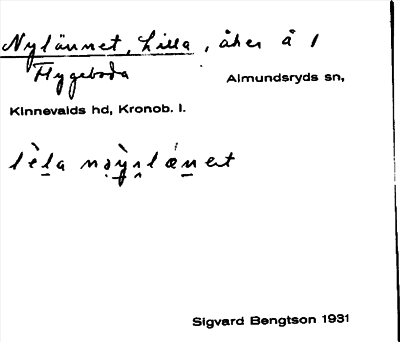 Nylännet, Lilla, åker å 1
Flygeboda Almundsryds sn,
Kinnevalds hd, Kronob. l.
Sigvard Bengtson 1931